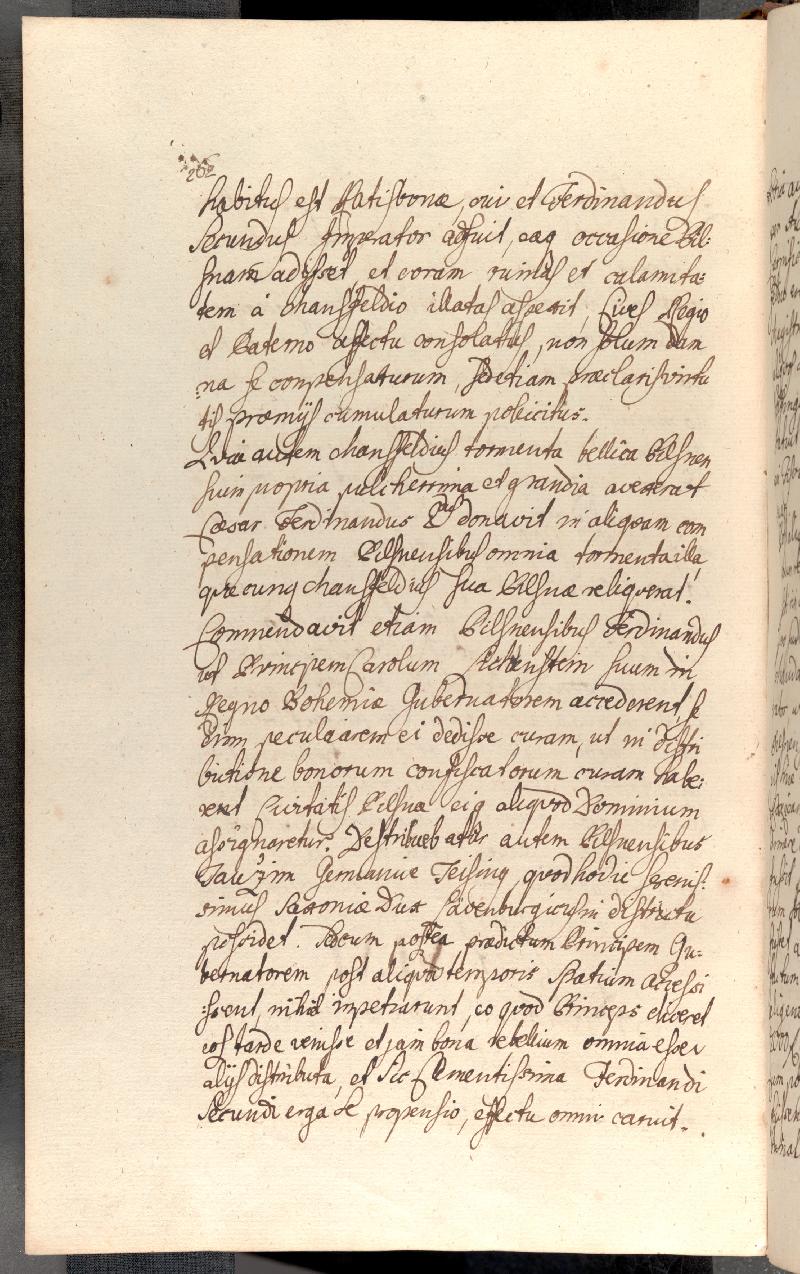 262
habitus est Ratisbonæ, cui et Ferdinandus
Secundus Imperator adfuit, eaq occasione Pil:
snam adysset, et coram ruinas et calamita:
tem à Mansffeldio illatas aspexit, Cives Regio
et Paterno affectu consolatus, non solum dam
:na se conpensaturum, sed etiam præclaris virtu
tis præmijs cumulaturum policitus.
Quia autem Mansffeldius tormenta bellica Pilsnen
sium propria pulcherrima et grandia avexerat
Cæsar Ferdinandus 2dus donavit in aliquam com
pensationem Pilsnensibus omnia tormenta illa
quæcunq Mansffeldius sua Pilsnæ reliqverat.
Commendavit etiam Pilsnensibus Ferdinandus
ut Principem Carolum Lichtenstein suum in
Regno Bohemiæ Gubernatorem accederent, se
enim peculiarem ei dedisse curam, ut in distri
butione bonorum confiscatorum curam habe:
ret Civitatis Pilsnæ eiq aliquod Dominium
assignaretur. Destribuebatur autem Pilsnensibus
Tauzim Germanice Teising quod hodie Serenis:
simus Saxoniæ Dux Lavenburgicus in districtu
possidet. Sed cum postea prædictum Principem Gu:
bernatorem post aliquod temporis Spatium accessi
:ssent, nihil impetrarunt, eo quod Princeps diceret
eos tarde venisse et jam bona rebellium omnia esse
alijs distributa, et sic Clementissima Ferdinandi
Secundi erga se propensio, effectu omni caruit.